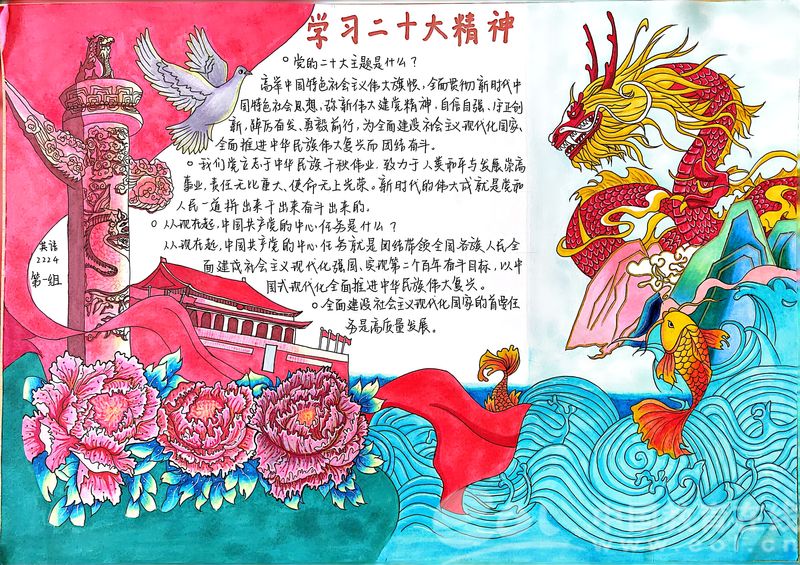 学习二十大精神
党的二十大主题是什么？
高举中国特色社会主义伟大旗帜、全面贯彻新时代中
国特色社会思想，弥新伟大建度精神，自信自强、守正创
新，踔厉奋发、勇毅前行，为全面建设社会主义现代化国家、
全面推进中华民族伟大复兴而团结奋斗。
我们党立志于中华民族千秋伟业，致力于人类和平与发展崇高
事业，责任无比重大、使命无上光荣。新时代的伟大成就是党和
人民一道拼出来干出来奋斗出来的。
从现在起，中国共产党的中心任务是什么？
从现在起，中国共产党的中心任务就是团结带领全国各族人民全
面建成社会主义现代化强国、实现第二个百年奋斗目标，以中
国式现代化全面推进中华民族伟大复兴。
全面建设社会主义现代化国家的首要任
务是高质量发展。
英语
2224
第一组